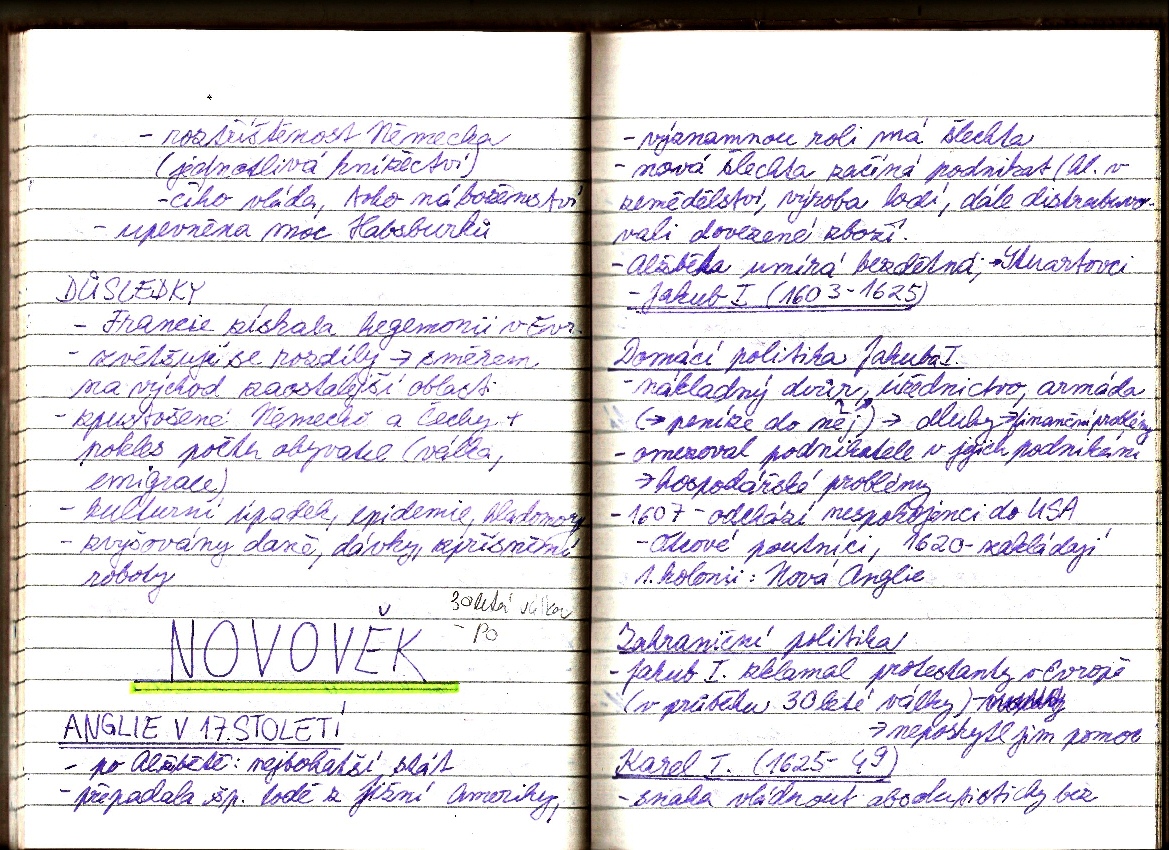 - roztříštěnost Německa
(jednotlivá knížectví)
- čího vláda, toho náboženství
- upevněna moc Habsburků
DŮSLEDKY
- Francie získala hegemonii v Evr.
- zvětšují se rozdíly → směrem
na východ zaostalejší oblasti
- zpustošené Německo a Čechy +
pokles počtu obyvatel (válka,
emigrace)
- kulturní úpadek, epidemie, hladomory
- zvyšovány daně, dávky, zpřísnění
roboty
30letá válka
- Po
NOVOVĚK
ANGLIE V 17. STOLETÍ
- po Alžbětě: nejbohatší stát
- přepadala šp. lodě z Jižní Ameriky,
- významnou roli má šlechta
- nová šlechta začíná podnikat (hl. v
zemědělství, výroba lodí, dále distribuvo-
vali dovezené zboží.
- Alžběta umírá bezdětná, → Stuartovci
- Jakub I. (1603-1625)
Domácí politika Jakuba I.
- nákladný dvůr, úřednictvo, armáda
(→ peníze do něj) → dluhy → finanční problémy
- omezoval podnikatele v jejich podnikání
→ hospodářské problémy
- 1607 - odchází nespokojenci do USA
- Otcové poutníci, 1620 - zakládají
1. kolonii: Nová Anglie
Zahraniční politika
- Jakub I. zklamal protestanty v Evropě
(v průběhu 30leté války)
→ neposkytl jim pomoc
Karel I. (1625-49)
- snaha vládnout absolutisticky bez